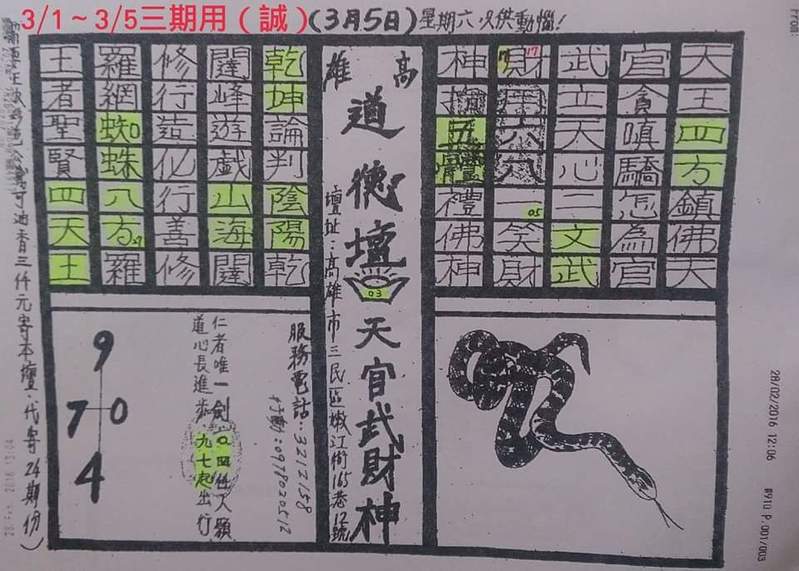 3/1～3/5三期用（誠）
(3月5日)星期六 只供動惱!
天王四方鎮佛天
官貪嗔驕怎為官
武立天心二文武
財神六八一笑財
17
17
05
神五禮佛神
高雄
道德壇
03
天官武財神
壇址：高雄市三民區嫩江街165巷12號
乾坤論判陰陽乾
闥峰遊戲山海闥
修行造化行善修
羅網蜘蛛八方羅
王者聖賢四天王
服務電話：3212158
行動：0978020512
仁者唯一劍〇四任人願
道心長進步九七起出行
9
7 0
4
公義可油香三仟元寄本壇．代寄24期份）
28/02/2016 12:06
P.001/003
From: